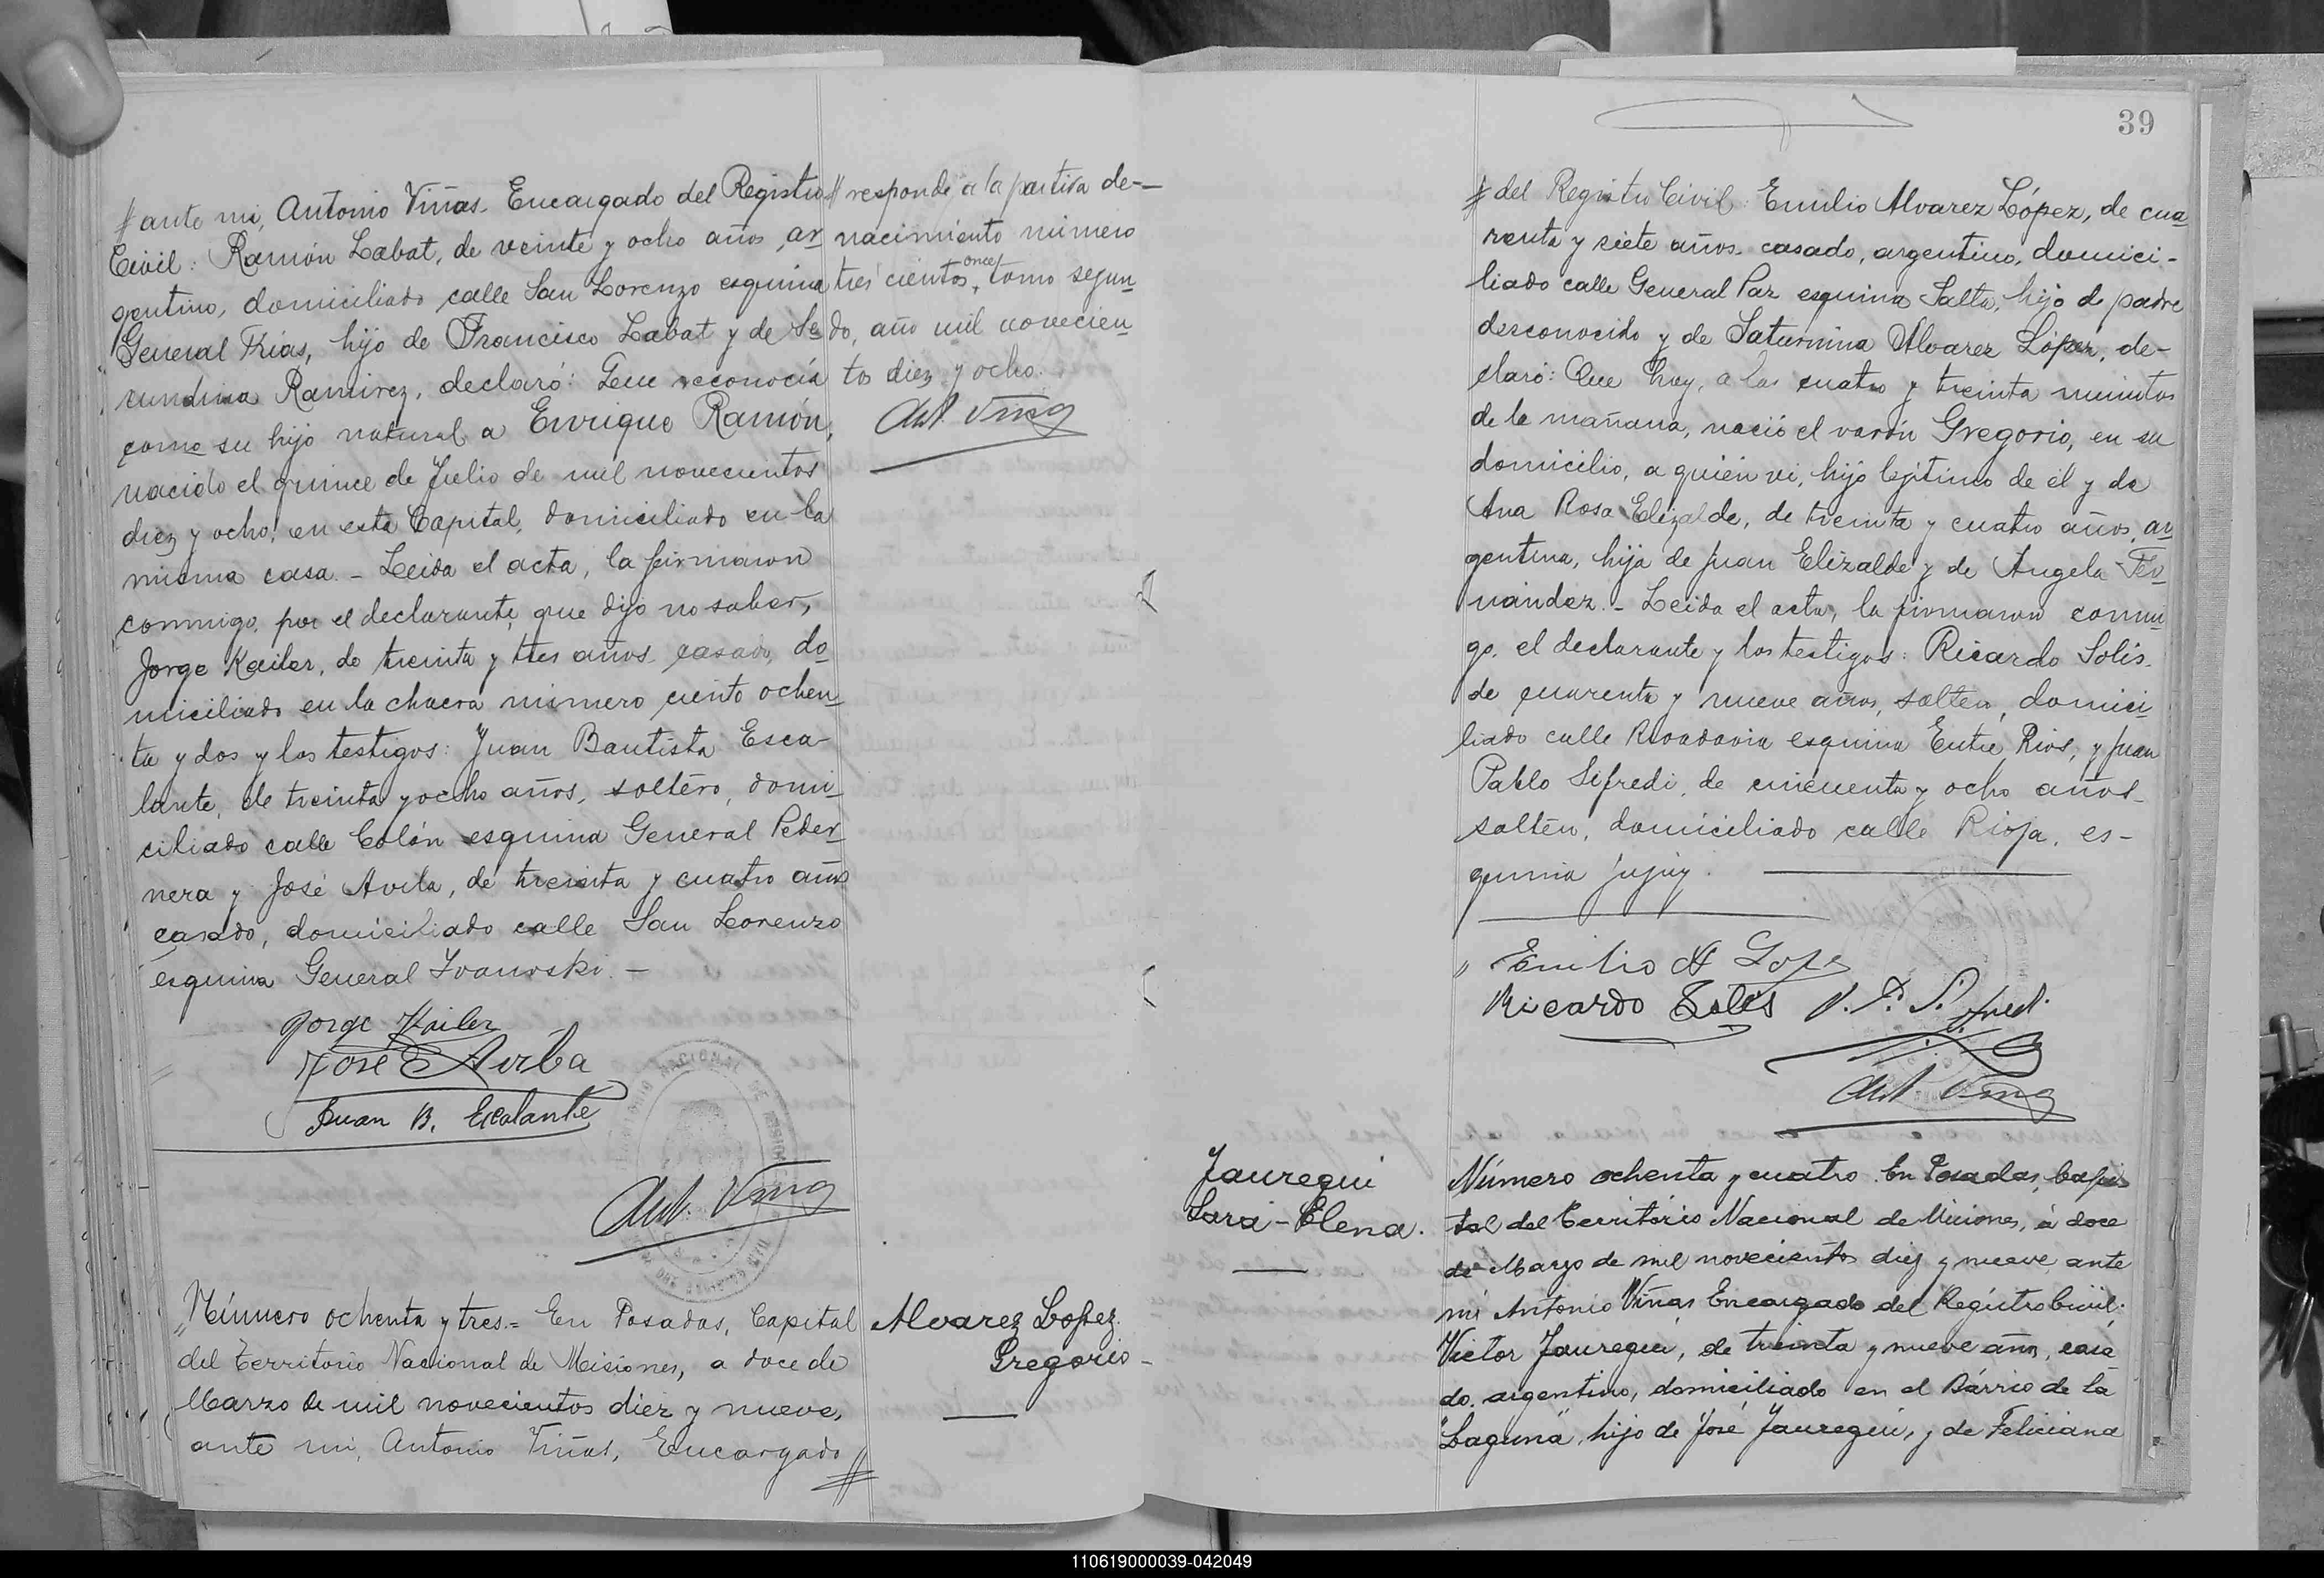 ante mi, Antonio Viñas. Encargado del Registro
Civil: Ramón Labat, de veinte y ocho años, ar
gentino, domiciliado calle San Lorenzo esquina
General Frías, hijo de Francisco Labat y de Se
cundina Ramirez, declaró: Que reconocía
como su hijo natural a Enrique Ramón,
nacido el quince de Julio de mil novecientos
diez y ocho, en esta Capital, domiciliado en la
misma casa. - Leida el acta, la firmaron
conmigo, por el declarante, que dijo no saber,
Jorge Kailer, de treinta y tres años, casado, do
miciliado en la chacra número ciento ochen
ta y dos y los testigos: Juan Bautista Esca-
lante, de treinta y ocho años, soltero, domi
ciliado calle Colón esquina General Peder
nera y José Avila, de treinta y cuatro años
casado, domiciliado calle San Lorenzo
esquina General Ivanoski. -
Jorge Kailer
José Avila
Juan B. Escalante
Ant. Viñas
responde a la partida de-
nacimiento número
once
tres cientos, tomo segun
do, año mil novecien
tos diez y ocho.
Ant. Viñas
Número ochenta y tres.= En Posadas, Capital
del Territorio Nacional de Misiones, a doce de
Marzo de mil novecientos diez y nueve,
ante mi, Antonio Viñas, Encargado
Alvarez Lopez
Gregorio -
39
del Registro Civil: Emilio Alvarez López, de cua
renta y siete años, casado, argentino, domici-
liado calle General Paz esquina Salta, hijo de padre
desconocido y de Saturnina Alvarez López, de-
claró: Que hoy, a las cuatro y treinta minutos
de la mañana, nació el varón Gregorio, en su
domicilio, a quién vi, hijo lejitimo de él y de
Ana Rosa Elizalde, de treinta y cuatro años, ar
gentina, hija de Juan Elizalde y de Angela Fer
nandez. - Leida el acta, la firmaron conmi
go, el declarante y los testigos: Ricardo Solis.
de cuarenta y nueve años, soltero, domici
liado calle Rivadavia esquina Entre Rios, y Juan
Pablo Sifredi, de cincuenta y ocho años
soltero, domiciliado calle Rioja, es-
quina Jujuy.
Emilio A Lopez
Ricardo Solis J. P. Sifredi
Ant. Viñas
Jauregui
Sara - Elena.
Número ochenta y cuatro. En Posadas, Capi
tal del Territorio Nacional de Misiones, á doce
de Marzo de mil novecientos diez y nueve, ante
mi Antonio Viñas Encargado del Registro Civil:
Victor Jauregui, de treinta y nueve años, casa
do, argentino, domiciliado en el Bárrio de la
"Laguna", hijo de José Jauregui, y de Feliciana
110619000039-042049